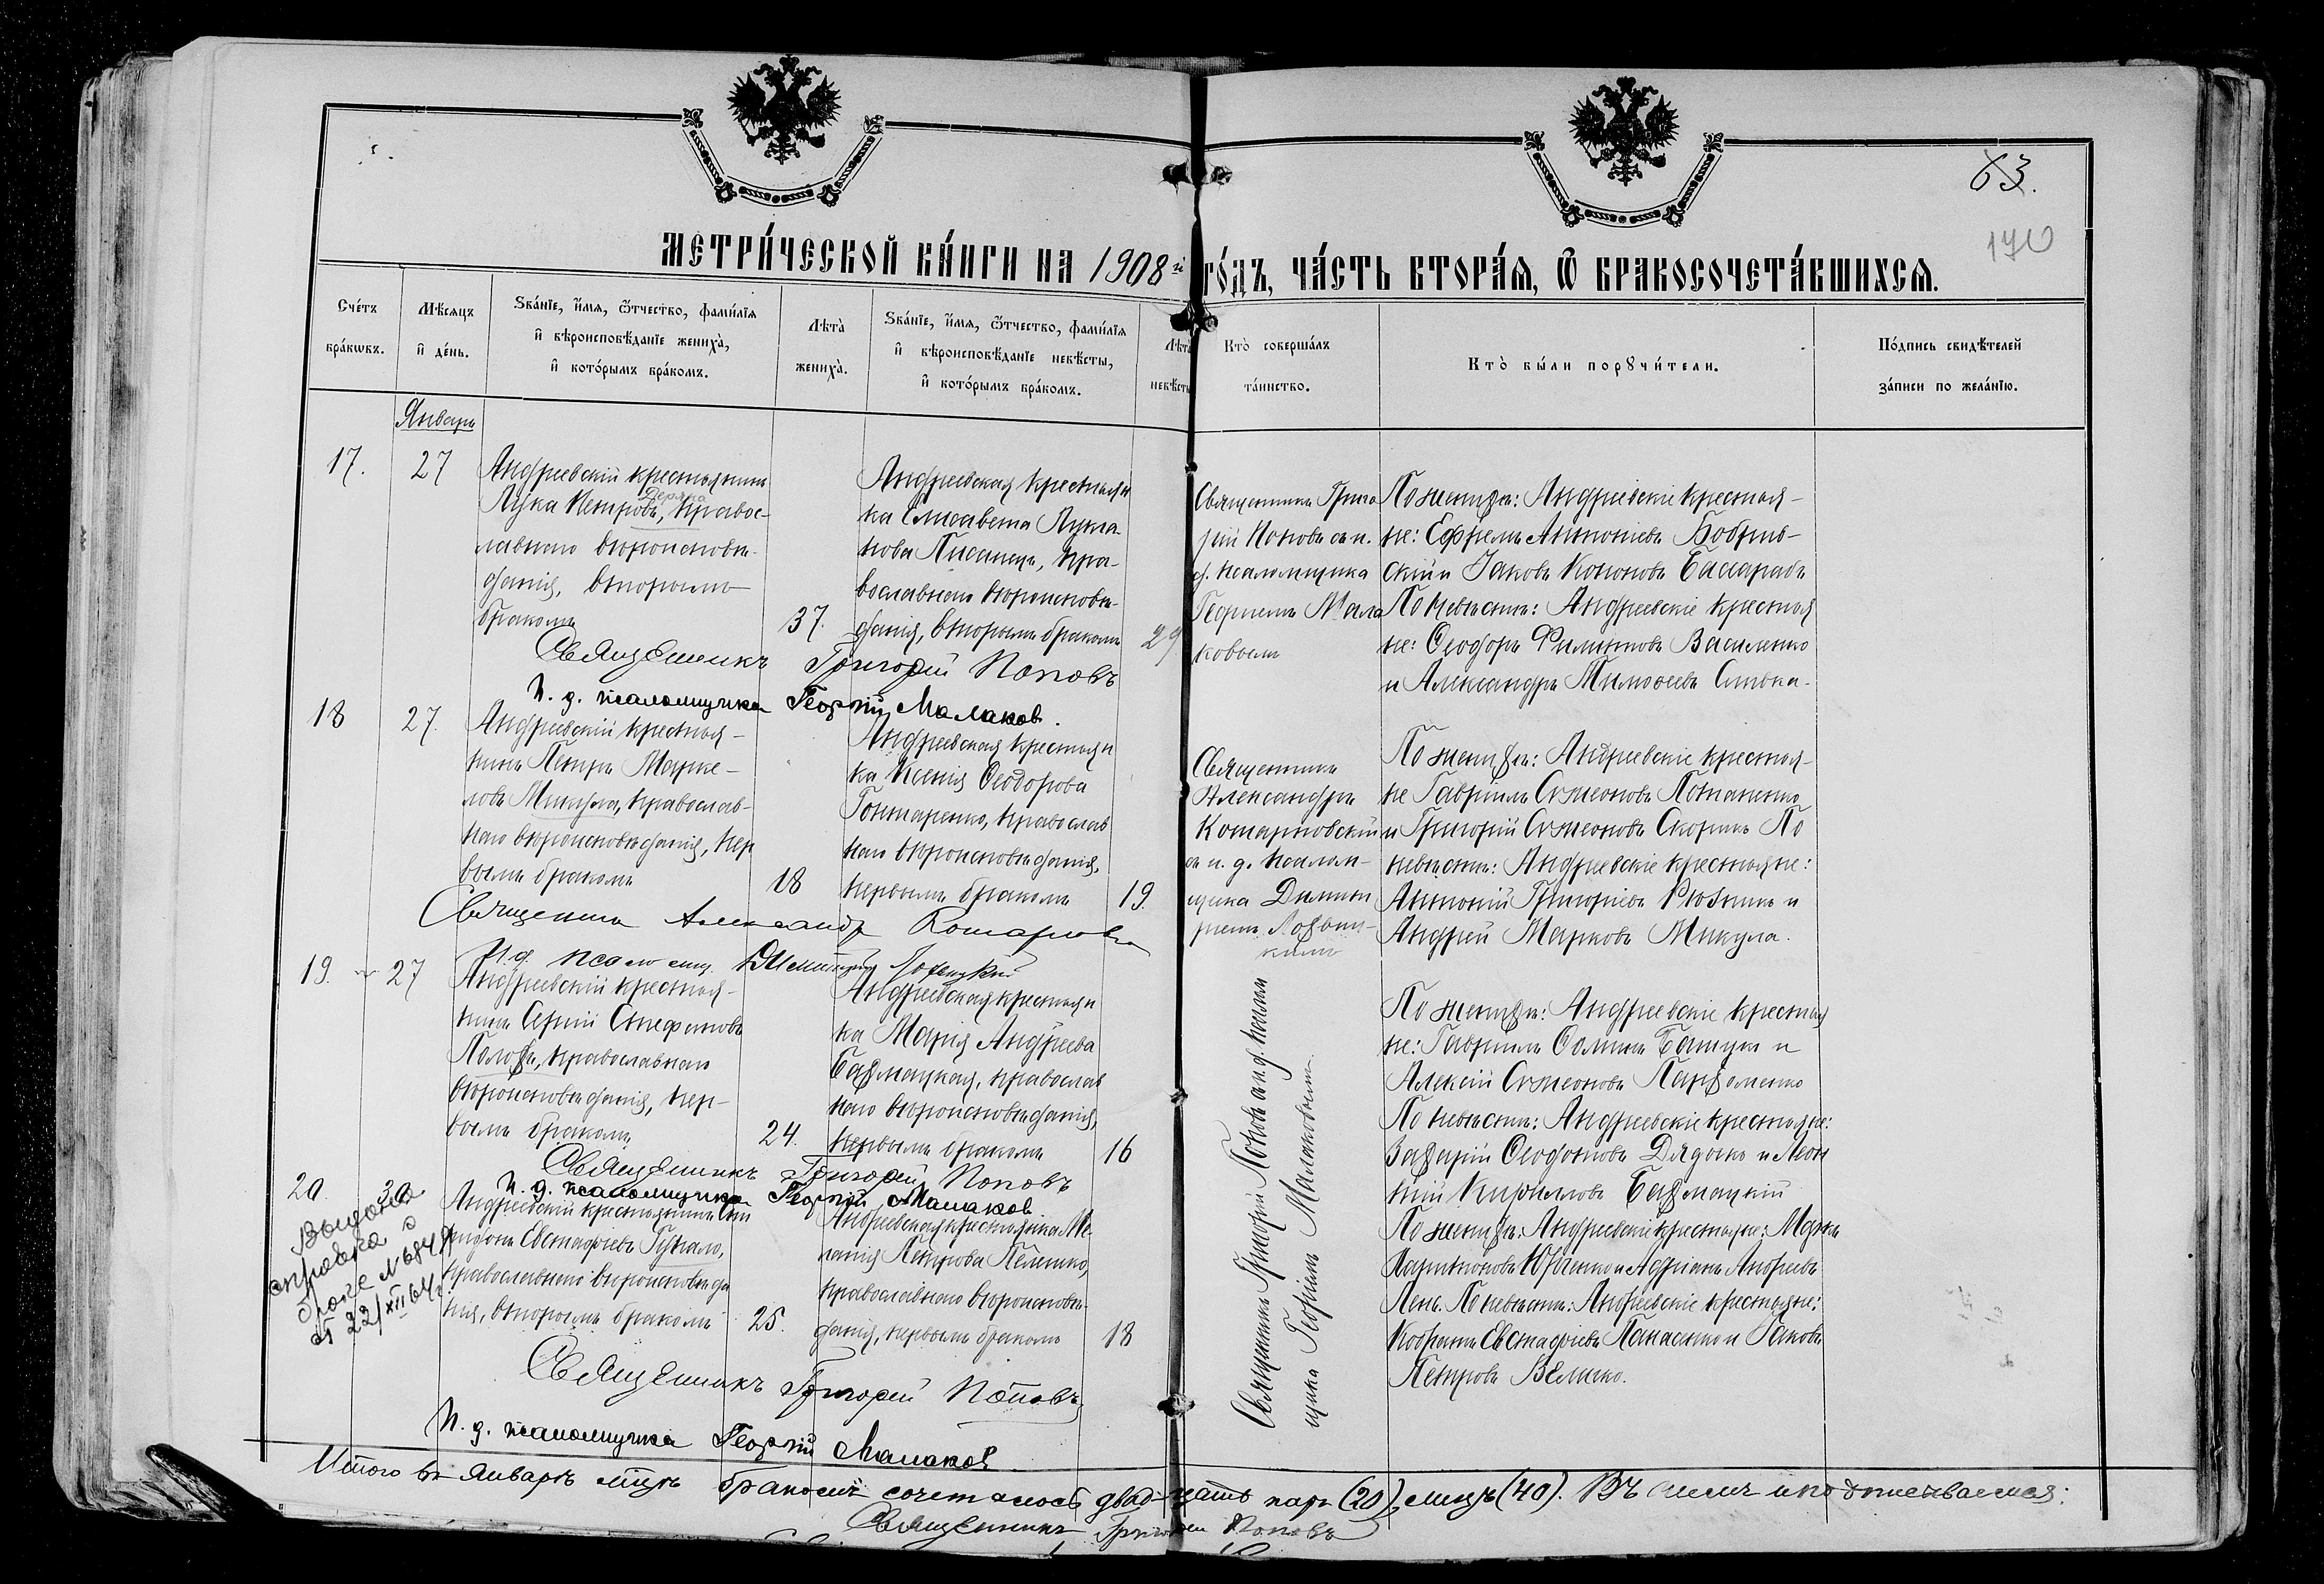 63.
170
МЕТРИ́ЧЕСКОЙ КНИ́ГИ НА 1908й ГО́ДЪ, ЧА́СТЬ ВТОРА́Я, Ѿ БРАКОСОЧЕТА́ВШИХСЯ.
Сче́тъ бра́кѡвъ.
Мѣ́сяцъ и де́нь.
Ѕва́нїе, и́мя, ѻ́тчество, фами́лїя
и вѣроисповѣ́данїе жениха̀,
и кото́рымъ бра́комъ.
Лѣ́та жениха̀.
Ѕва́нїе, и́мя, ѻ́тчество, фами́лїя
и вѣроисповѣ́данїе невѣ́сты,
и кото́рымъ бра́комъ.
Лѣ́та невѣ́сты
Кто̀ соверша́лъ
та́инство.
Кто̀ бы́ли порꙋчи́тели.
По́дпись свидѣ́телей
за́писи по жела́нїю.
Январь
17.
27
Андреевскій крестьянинъ
Лука Петровъ, правос-
лавнаго вѣроисповѣ-
данія, вторымъ
бракомъ
37.
Андреевская крестьян
ка Елисавета Лукia-
нова Писанецъ, пра-
вославнаго вѣроисповѣ-
данія, вторымъ бракомъ
29
Священникъ Григо
рій Поповъ съ и.
д. псаломщика
Георгіемъ Мала
ковымъ
По женихѣ: Андреевскіе крестья-
не: Ефремъ Антоніевъ Бобрив-
скій и Іаковъ Кононовъ Басарабъ
По невѣстѣ: Андреевскіе крестья
не: Ѳеодоръ Филипповъ Василенко
и Александръ Тимоѳеевъ Сливка.
Священникъ Григорій Поповъ
И. д. псаломщика Георгій Малаков.
18
27.
Андреевскій крестья-
нинъ Петръ Марке-
ловъ Микула, православ-
наго вѣроисповѣданія, пер
вымъ бракомъ
18
Андреевская крестьян
ка Ксенія Ѳеодорова
Гонтаренко, православ
наго вѣроисповѣданія,
первымъ бракомъ
19.
Священникъ
Александръ
Комарновскій
съ и. д. псалом-
щика Димит
ріемъ
По женихѣ: Андреевскіе крестья-
не Гавріилъ Сѵмеоновъ Потапенко
и Григорій Сѵмеоновъ Скорикъ По
невѣстѣ: Андреевскіе крестьяне:
Антоній Григоріевъ Рѣзникъ и
Андрей Марковъ Микула.
Священникъ Александр
И.д. псаломщ. Димитрій
19.
27
Андреевскій крестья-
нинъ Сергій Стефановъ
Полоз, православнаго
вѣроисповѣданія, пер-
вымъ бракомъ
24.
Андреевская крестьян
ка Марія Андреева
Бахмацкая, православ
наго вѣроисповѣданія,
первымъ бракомъ
16
Священникъ Григорій Поповъ съ и. д. псалом
щика Георгіемъ Малаковымъ
По женихѣ: Андреевскіе крестья
не: Гавріилъ Ѳоминъ Башукъ и
Алексій Сѵмеоновъ Пархоменко
По невѣстѣ: Андреевскіе крестьяне:
Захарій Дядькъ и Леон
тій Кирилловъ Бахмацкій
Священникъ Григорій Поповъ
И. д. псаломщика Георгій Малаков
20.
30
Выдана
справка о
браке №
от 22/XII 64 г.
Андреевскій крестьянинъ Спи
ридонъ Евстафіевъ
православнаго вѣроисповѣда
нія, вторымъ бракомъ
25.
Андреевская крестьянка Ме
ланія Петрова
православнаго вѣроисповѣ-
данія, первымъ бракомъ
18
По женихѣ: Андреевскіе крестьяне: Маркъ
Юрченко и Адріанъ Андреевъ
Лень. По невѣстѣ: Андреевскіе крестьяне:
Кодратъ Евстафіевъ Панасенко и Іаковъ
Петровъ Величко.
Священникъ Григорій Поповъ
И. д. псаломщика Георгій Малаков
Итого въ Январѣ мцѣ бракомъ сочеталось двадцать паръ (20), лицъ (40). Въ чемъ и подписываемся:
Священникъ Григорій Поповъ